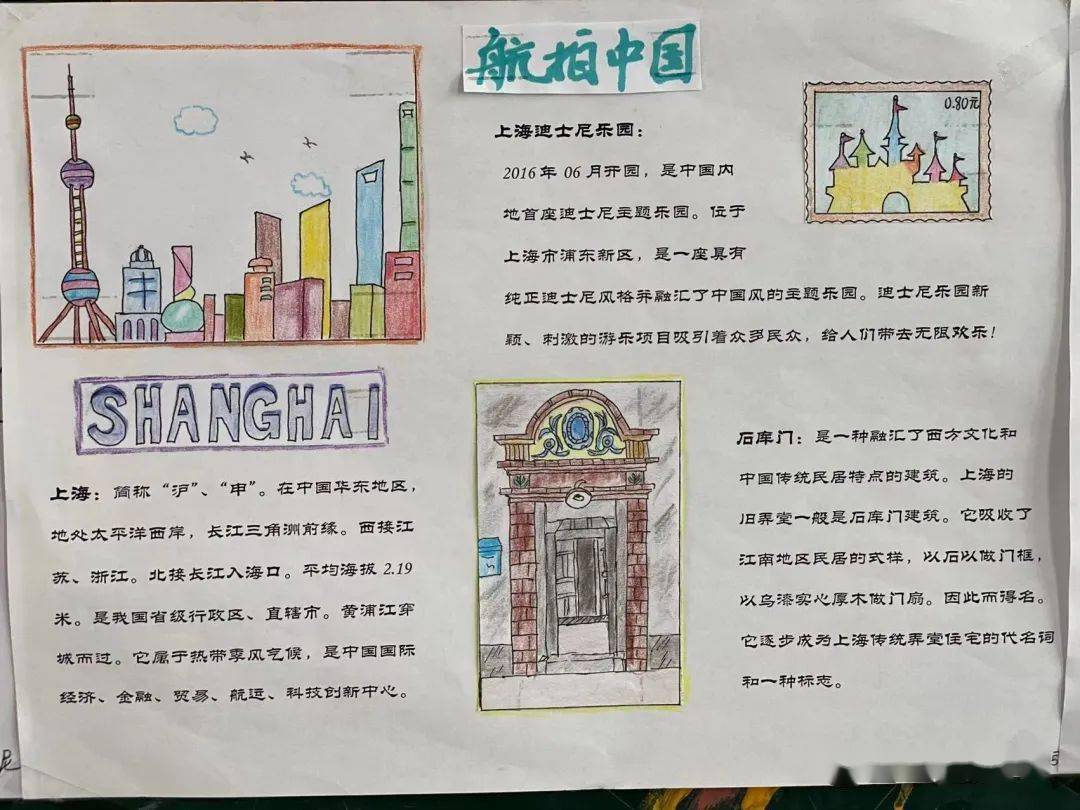 航拍中国
上海迪士尼乐园：
2016年06月开园，是中国内
地首座迪士尼主题乐园。位于
上海市浦东新区，是一座具有
纯正迪士尼风格并融汇了中国风的主题乐园。迪士尼乐园新
颖、刺激的游乐项目吸引着众多民众，给人们带去无限欢乐！
0.80元
SHANGHAI
上海：简称“沪”、“申”。在中国华东地区，
地处太平洋西岸，长江三角洲前缘。西接江
苏、浙江。北接长江入海口。平均海拔2.19
米。是我国省级行政区、直辖市。黄浦江穿
城而过。它属于热带季风气候，是中国国际
经济、金融、贸易、航运、科技创新中心。
石库门：是一种融汇了西方文化和
中国传统民居特点的建筑。上海的
旧弄堂一般是石库门建筑。它吸收了
江南地区民居的式样，以石以做门框，
以乌漆实心厚木做门扇。因此而得名。
它逐步成为上海传统弄堂住宅的代名词
和一种标志。
5